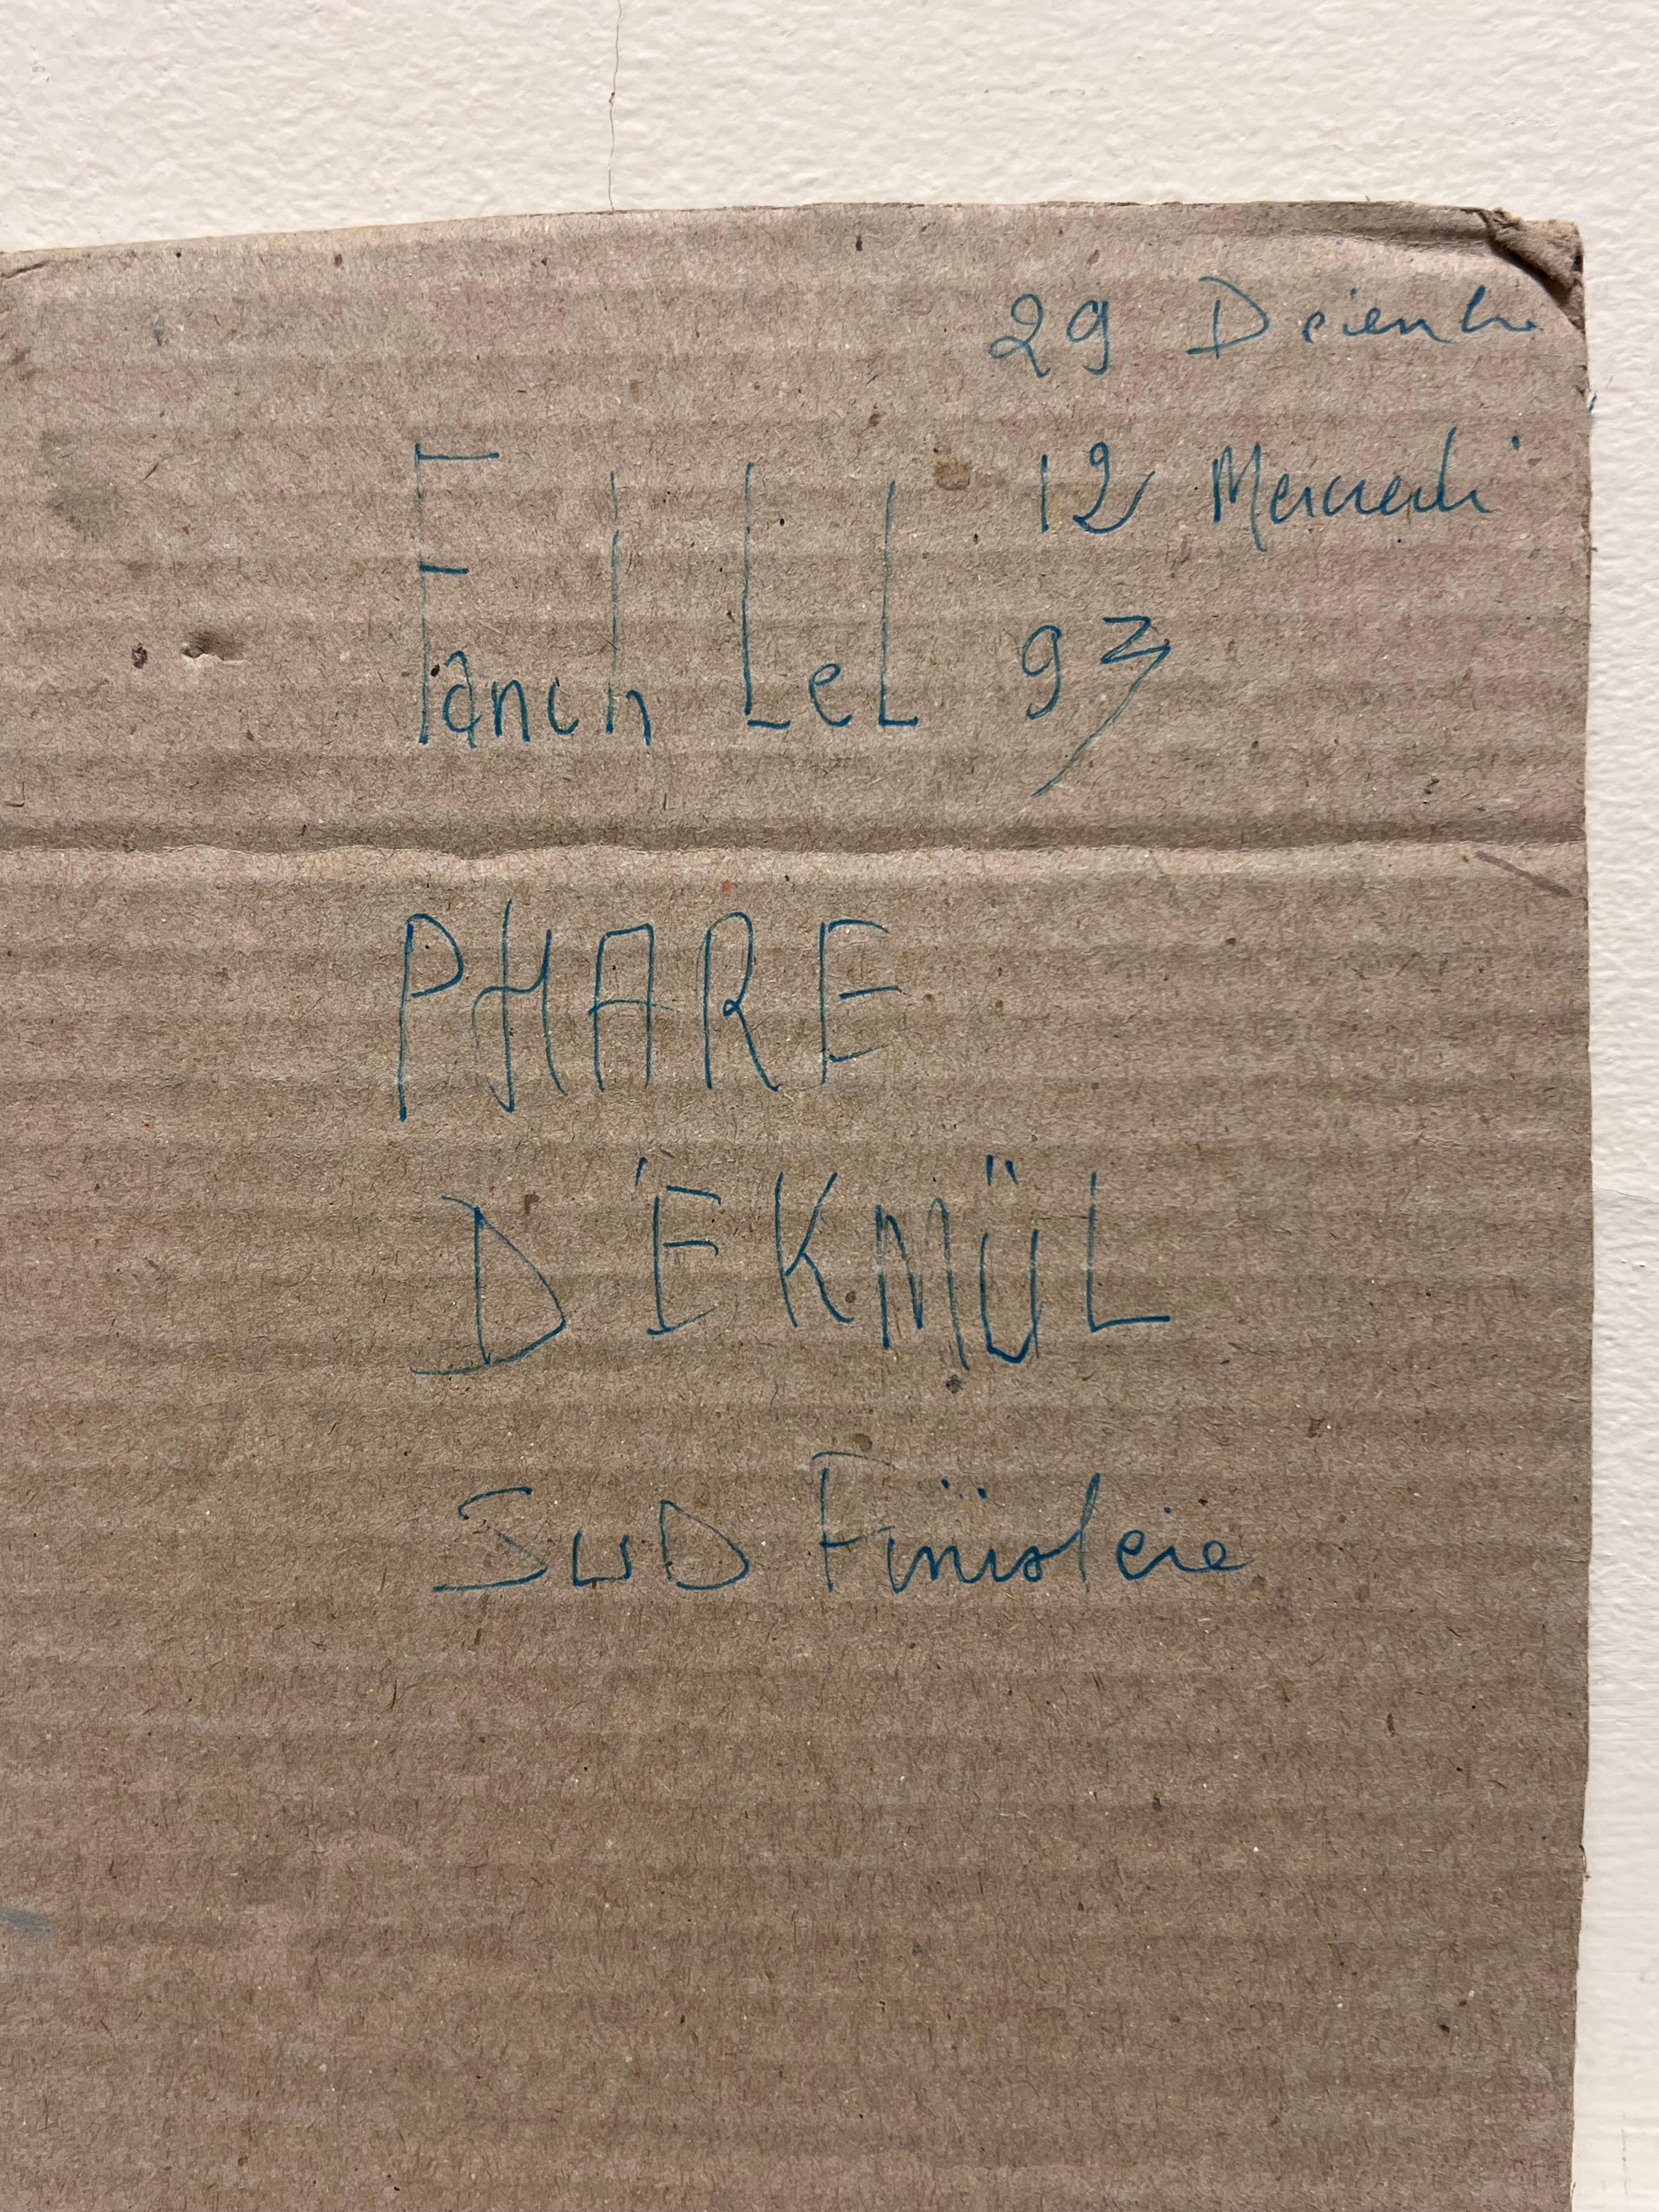 29 Décembre
12 Mercredi
Fanch LeL 93
PHARE
D'ÉKMÜL
SUD Finistère